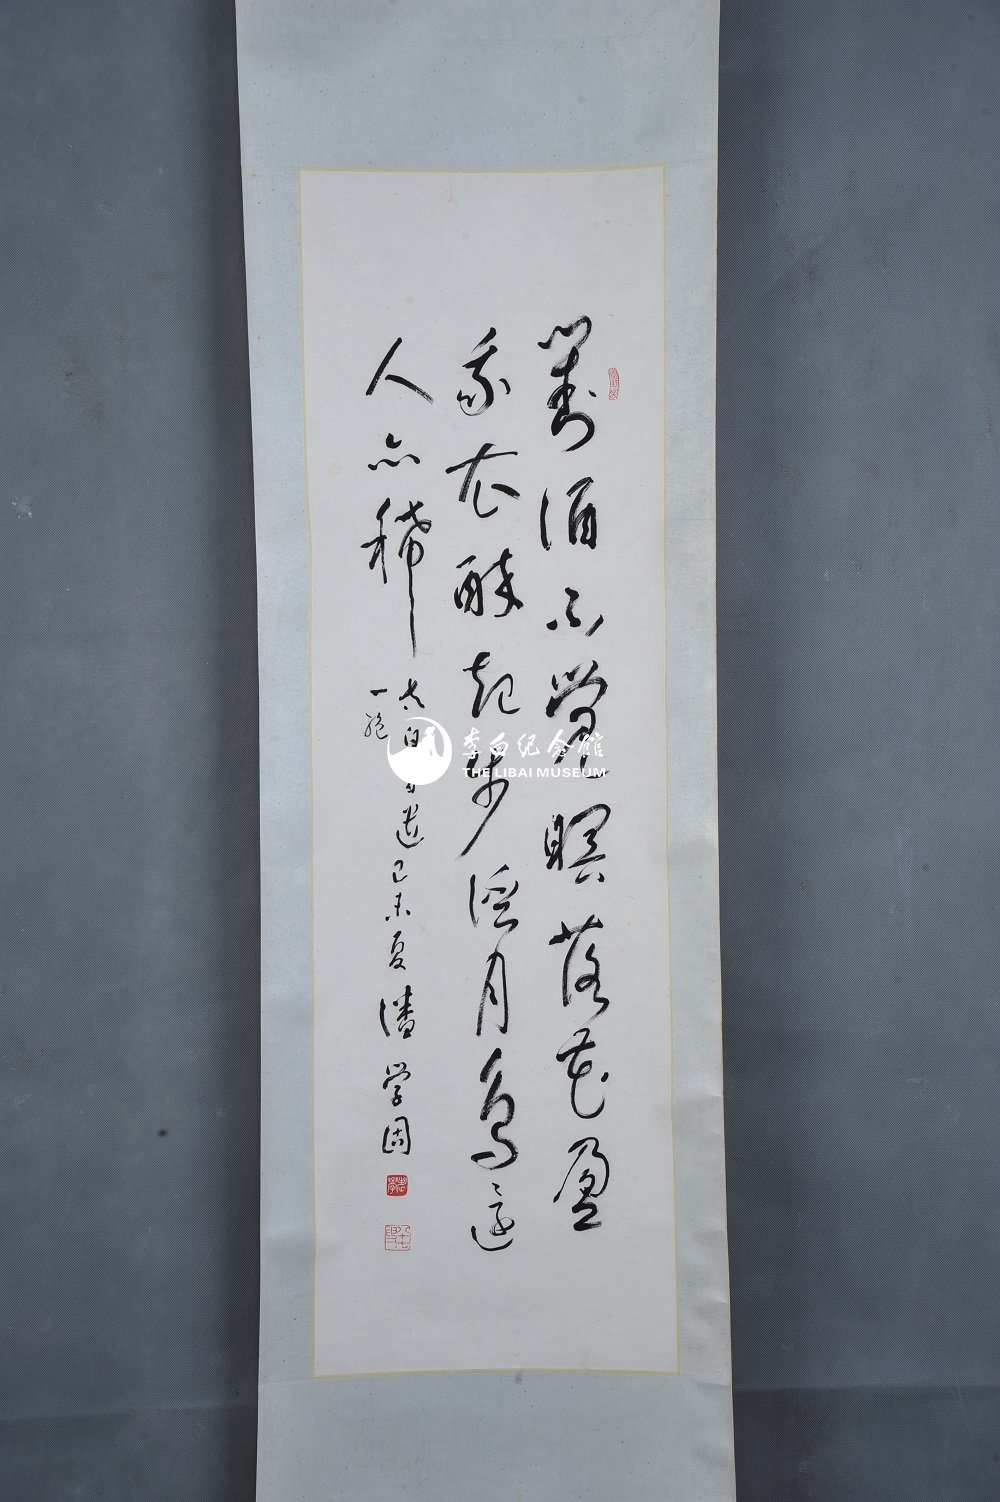 對酒不覺暝落花盈
我衣醉起步溪月鳥還
人亦稀
太白自遣
一絕
己未夏潘学固
李白纪念馆
THE LIBAI MUSEUM